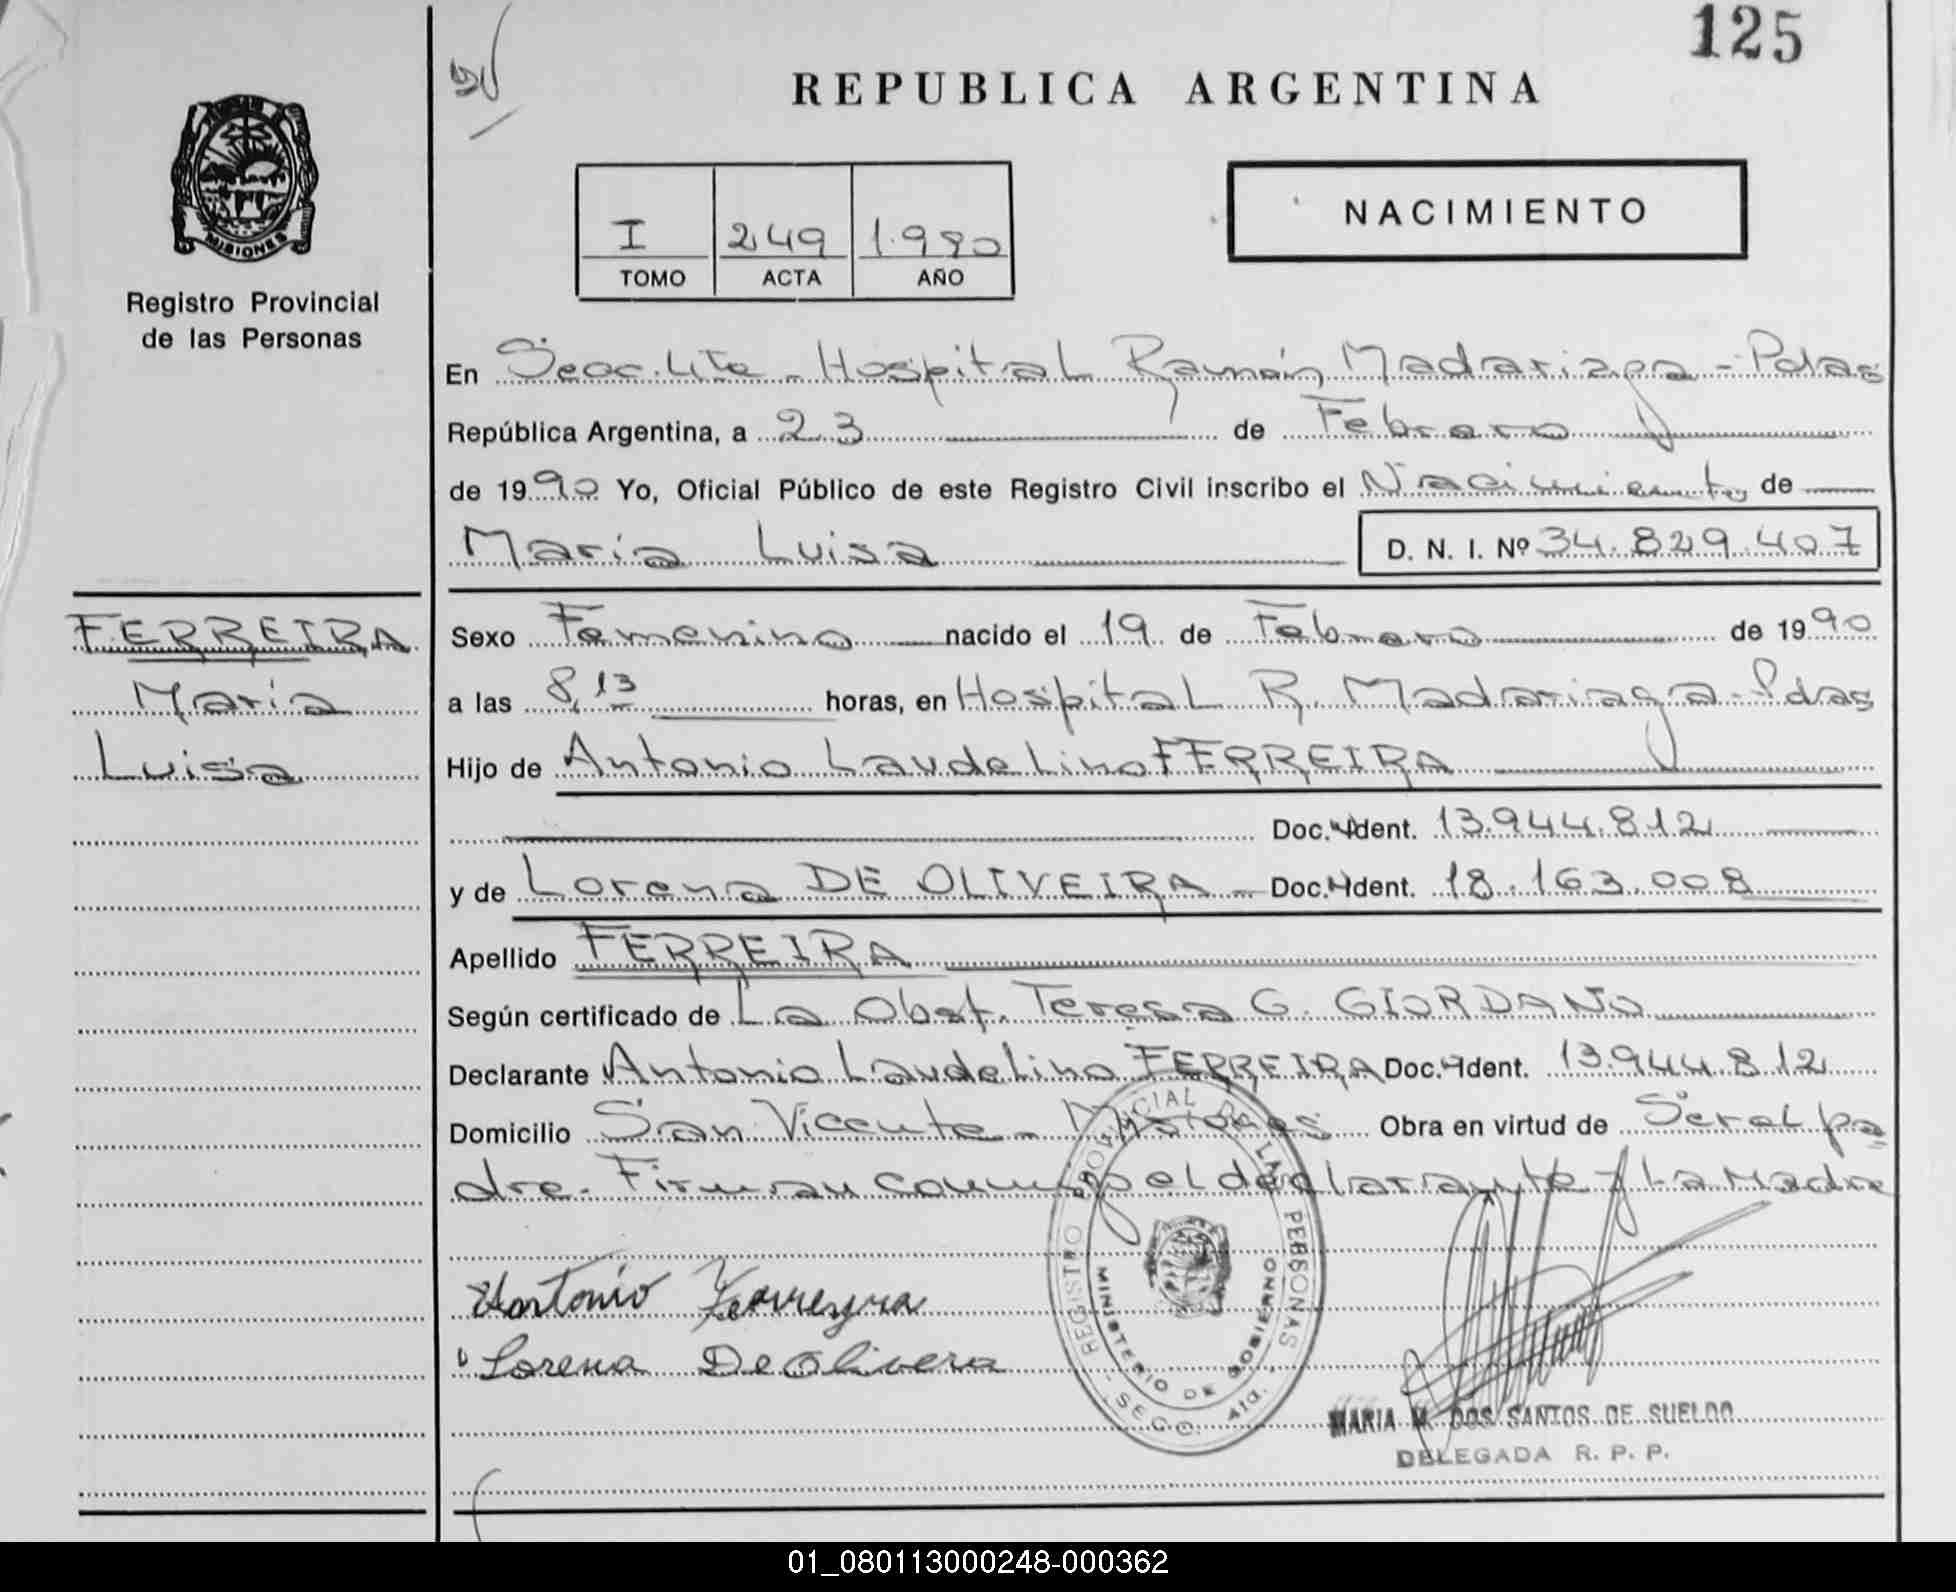 125
REPUBLICA ARGENTINA
MISIONES
Registro Provincial
de las Personas
I 249 1.990
TOMO ACTA AÑO
NACIMIENTO
En Secc. 4ta - Hospital Ramón Madariaga - Pdas
República Argentina, a 23 de Febrero
de 1990 Yo, Oficial Público de este Registro Civil inscribo el Nacimiento de
María Luisa D. N. I. Nº 34.829.407
FERREIRA
María
Luisa
Sexo Femenino nacido el 19 de Febrero de 1990
a las 8,13 horas, en Hospital R. Madariaga - Pdas
Hijo de Antonio Laudelino FERREIRA
Doc. Ident. 13.944.812
y de Lorena DE OLIVEIRA - Doc. Ident. 18.163.008
Apellido FERREIRA
Según certificado de La Obst. Teresa G. GIORDANO
Declarante Antonio Laudelino FERREIRA Doc. Ident. 13.944.812
Domicilio San Vicente - Misiones Obra en virtud de Ser el pa
dre. Firman conmigo el declarante y La Madre
Antonio Ferreyra
Lorena De Olivera
REGISTRO PROVINCIAL DE LAS PERSONAS
MINISTERIO DE GOBIERNO
- SECC. 4ta. -
MARIA M. DOS SANTOS DE SUELDO
DELEGADA R. P. P.
01_080113000248-000362